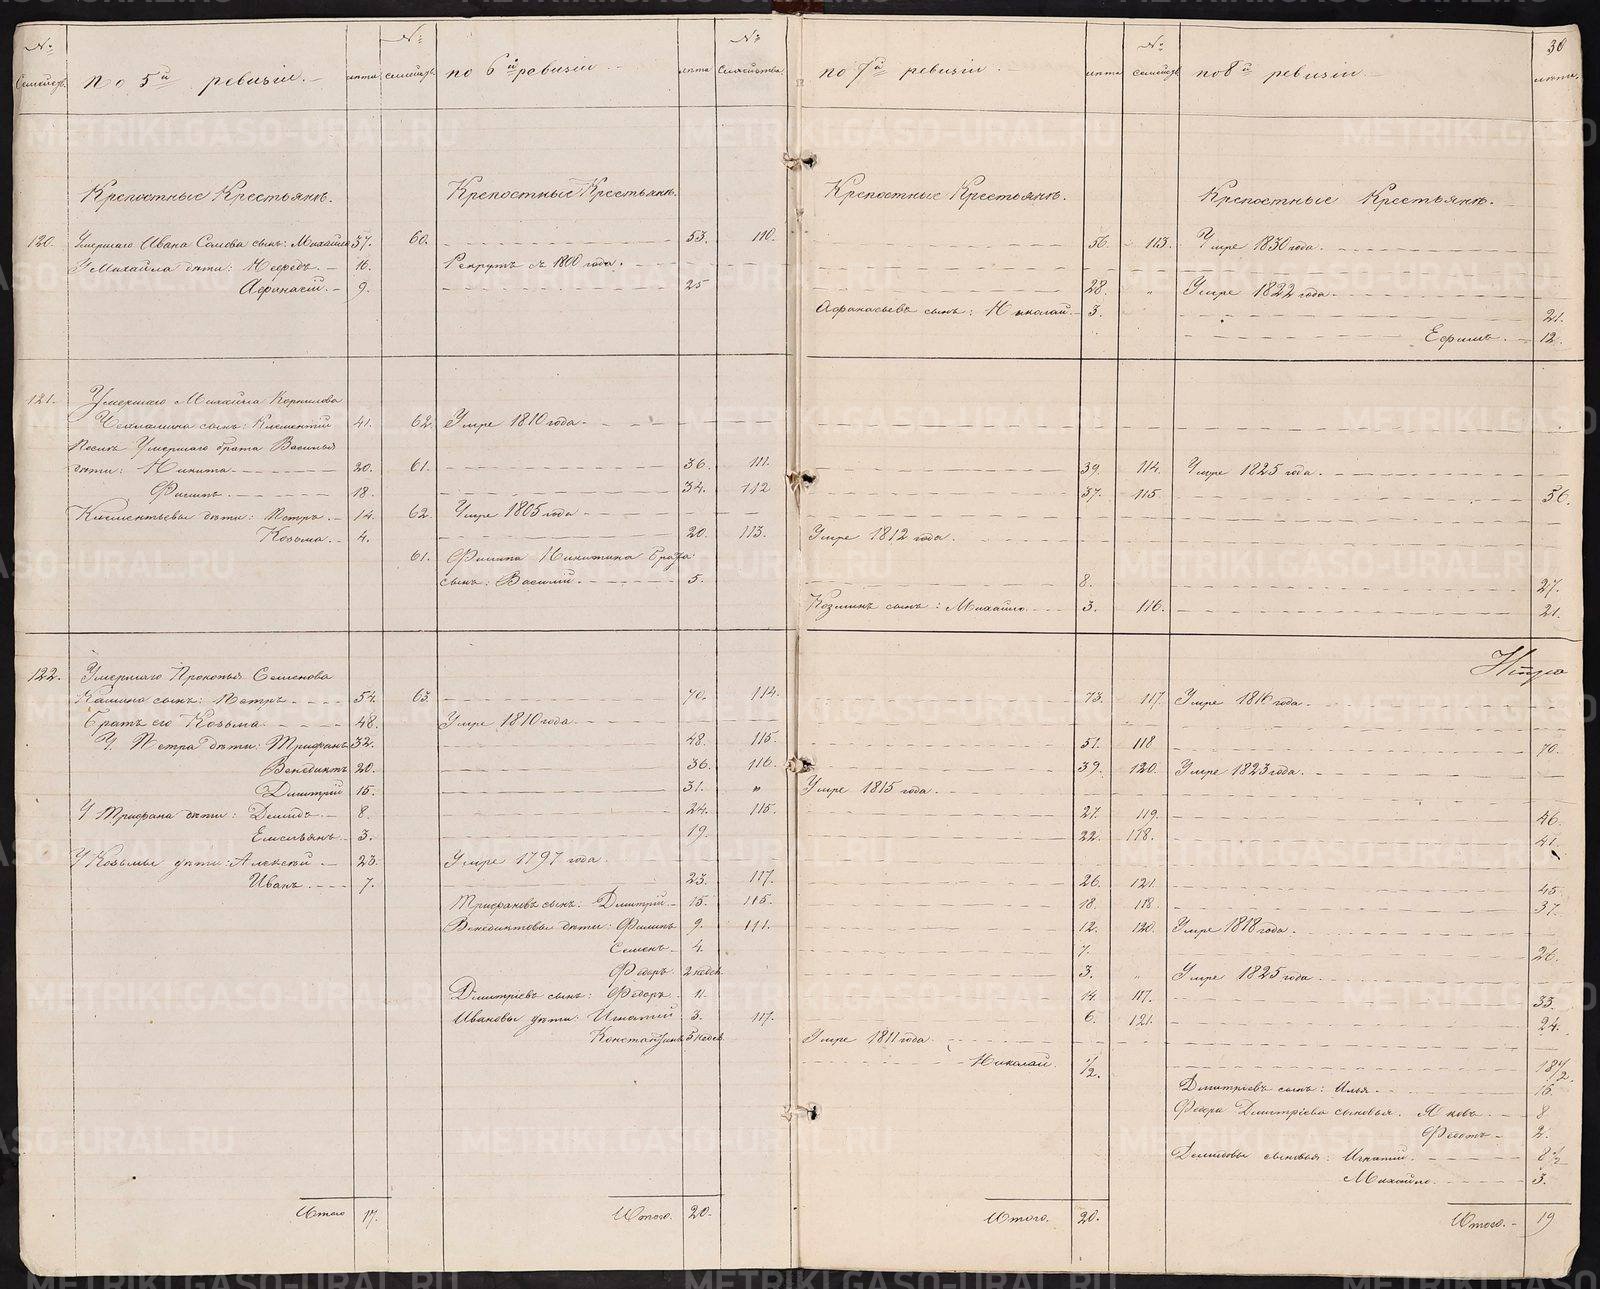 30
№ Семейст. По 5й ревизiи. лѣта № семейст. по 6й ревизiи лѣта № Семейства по 7й ревизiи. лѣта № семейст. по 8й ревизiи лѣта.
Крепостные Крестьянѣ. Крепостные Крестьянѣ. Крепостные Крестьянѣ. Крепостные Крестьянѣ.
120. Умершаго Ивана сынъ: Михайло 37. 60. 53. 110. 56. 113. Умре 1830 года.
У Михайла дѣти: 16. Рекрутъ съ 1800 года.
Афанасiй. 9. 25 28. " Умре 1822 года.
Афанасьевъ сынъ: Николай. 3. 21.
Ефимъ. 12.
121. Умершаго Михайла Корнилова
сынъ: Клементiй 41. 62. Умре 1810 года.
Умершаго брата Василья
дѣти: Никита. 20. 61. 36. 111. 39. 114. Умре 1825 года.
Филипъ. 18. 34. 112 37. 115. 56.
Клементьевы дѣти: Петръ. 14. 62. Умре 1805 года
Козьма. 4. 20. 113. Умре 1812 года.
61. Филипа Никитина брата
сынъ: Василiй. 5. 8. 27.
Козминъ сынъ: Михайло. 3. 116. 21.
122. Умершаго Прокопья Семенова
сынъ: Петръ 54. 63. 70. 114. 73. 117. Умре 1816 года.
Братъ его Козьма. 48. Умре 1810 года.
У Петра дѣти: Трифанъ 32. 48. 115. 51. 118. 70.
Венедиктъ 20. 36. 116. 39. 120. Умре 1823 года.
Дмитрiй 15. 31. " Умре 1815 года.
У Трифана дѣти: Демидъ 8. 24. 115. 27. 119. 46.
Емельянъ 3. 19. 22. 118. 41.
У Козьмы дѣти: Алексѣй 23. Умре 1797 года.
Иванъ. 7. 23. 117. 26. 121. 45.
Трифановъ сынъ: Дмитрiй. 15. 115. 18. 118. 37.
Венедиктовы дѣти: Филипъ 9. 111. 12. 120. Умре 1818 года.
Семенъ 4. 7. 26.
Федоръ 2 недел. 3. " Умре 1825 года.
Дмитрiевъ сынъ: Федоръ 11. 14. 117. 33.
Ивановы дѣти: Игнатiй 3. 117. 6. 121. 24.
Константинъ 5 недел. Умре 1811 года.
Николай. 1/2. 18 1/2.
Дмитрiевъ сынъ: Илья. 15.
Федора Дмитрiева сыновья. Яковъ. 8
Федотъ 2.
Демидовы сыновья: Игнатiй. 8 1/2
Михайло. 3.
Итого 17. Итого. 20. Итого. 20. Итого. 19
METRIKI.GASO-URAL.RU